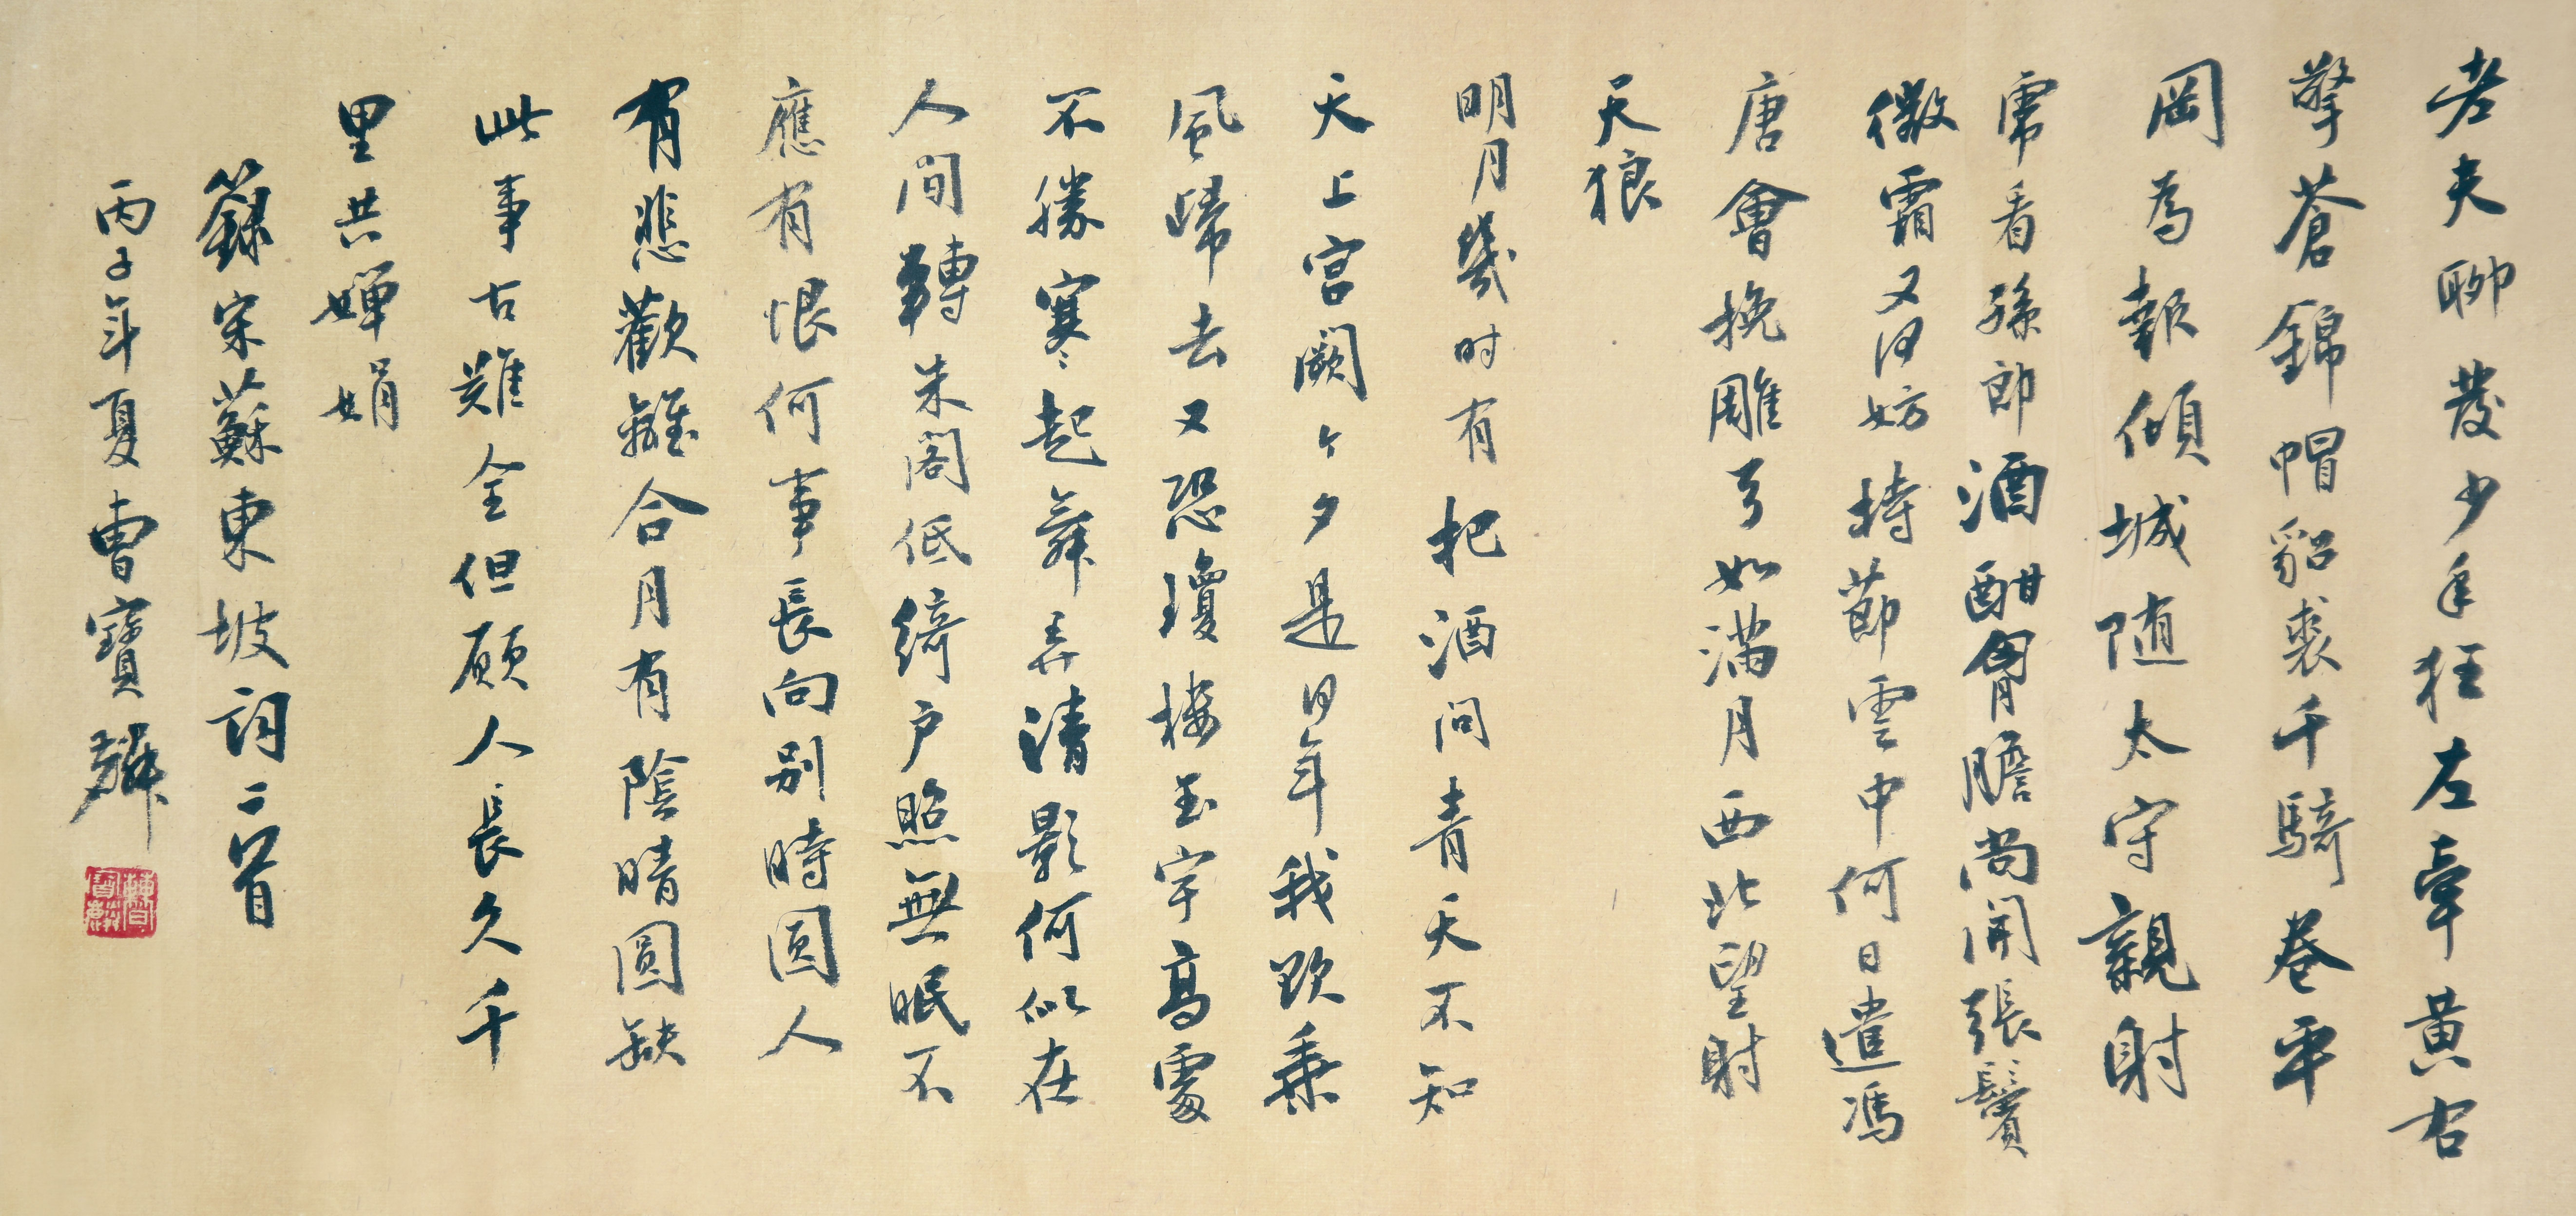 老夫聊發少年狂左牽黃右
擎蒼錦帽貂裘千騎卷平
岡為報傾城随太守親射
虎看孫郎酒酣胷膽尚開張鬢
微霜又何妨持節雲中何日遣馮
唐會挽雕弓如滿月西北望射
天狼
明月幾时有把酒问青天不知
天上宫闕今夕是何年我欲乘
風歸去又恐瓊樓玉宇高處
不勝寒起舞弄清影何似在
人间轉朱閣低綺户照無眠不
應有恨何事長向别時圓人
有悲歡離合月有陰晴圓缺
此事古難全但願人長久千
里共嬋娟
籙宋蘇東坡詞二首
丙子年夏曹寶麟